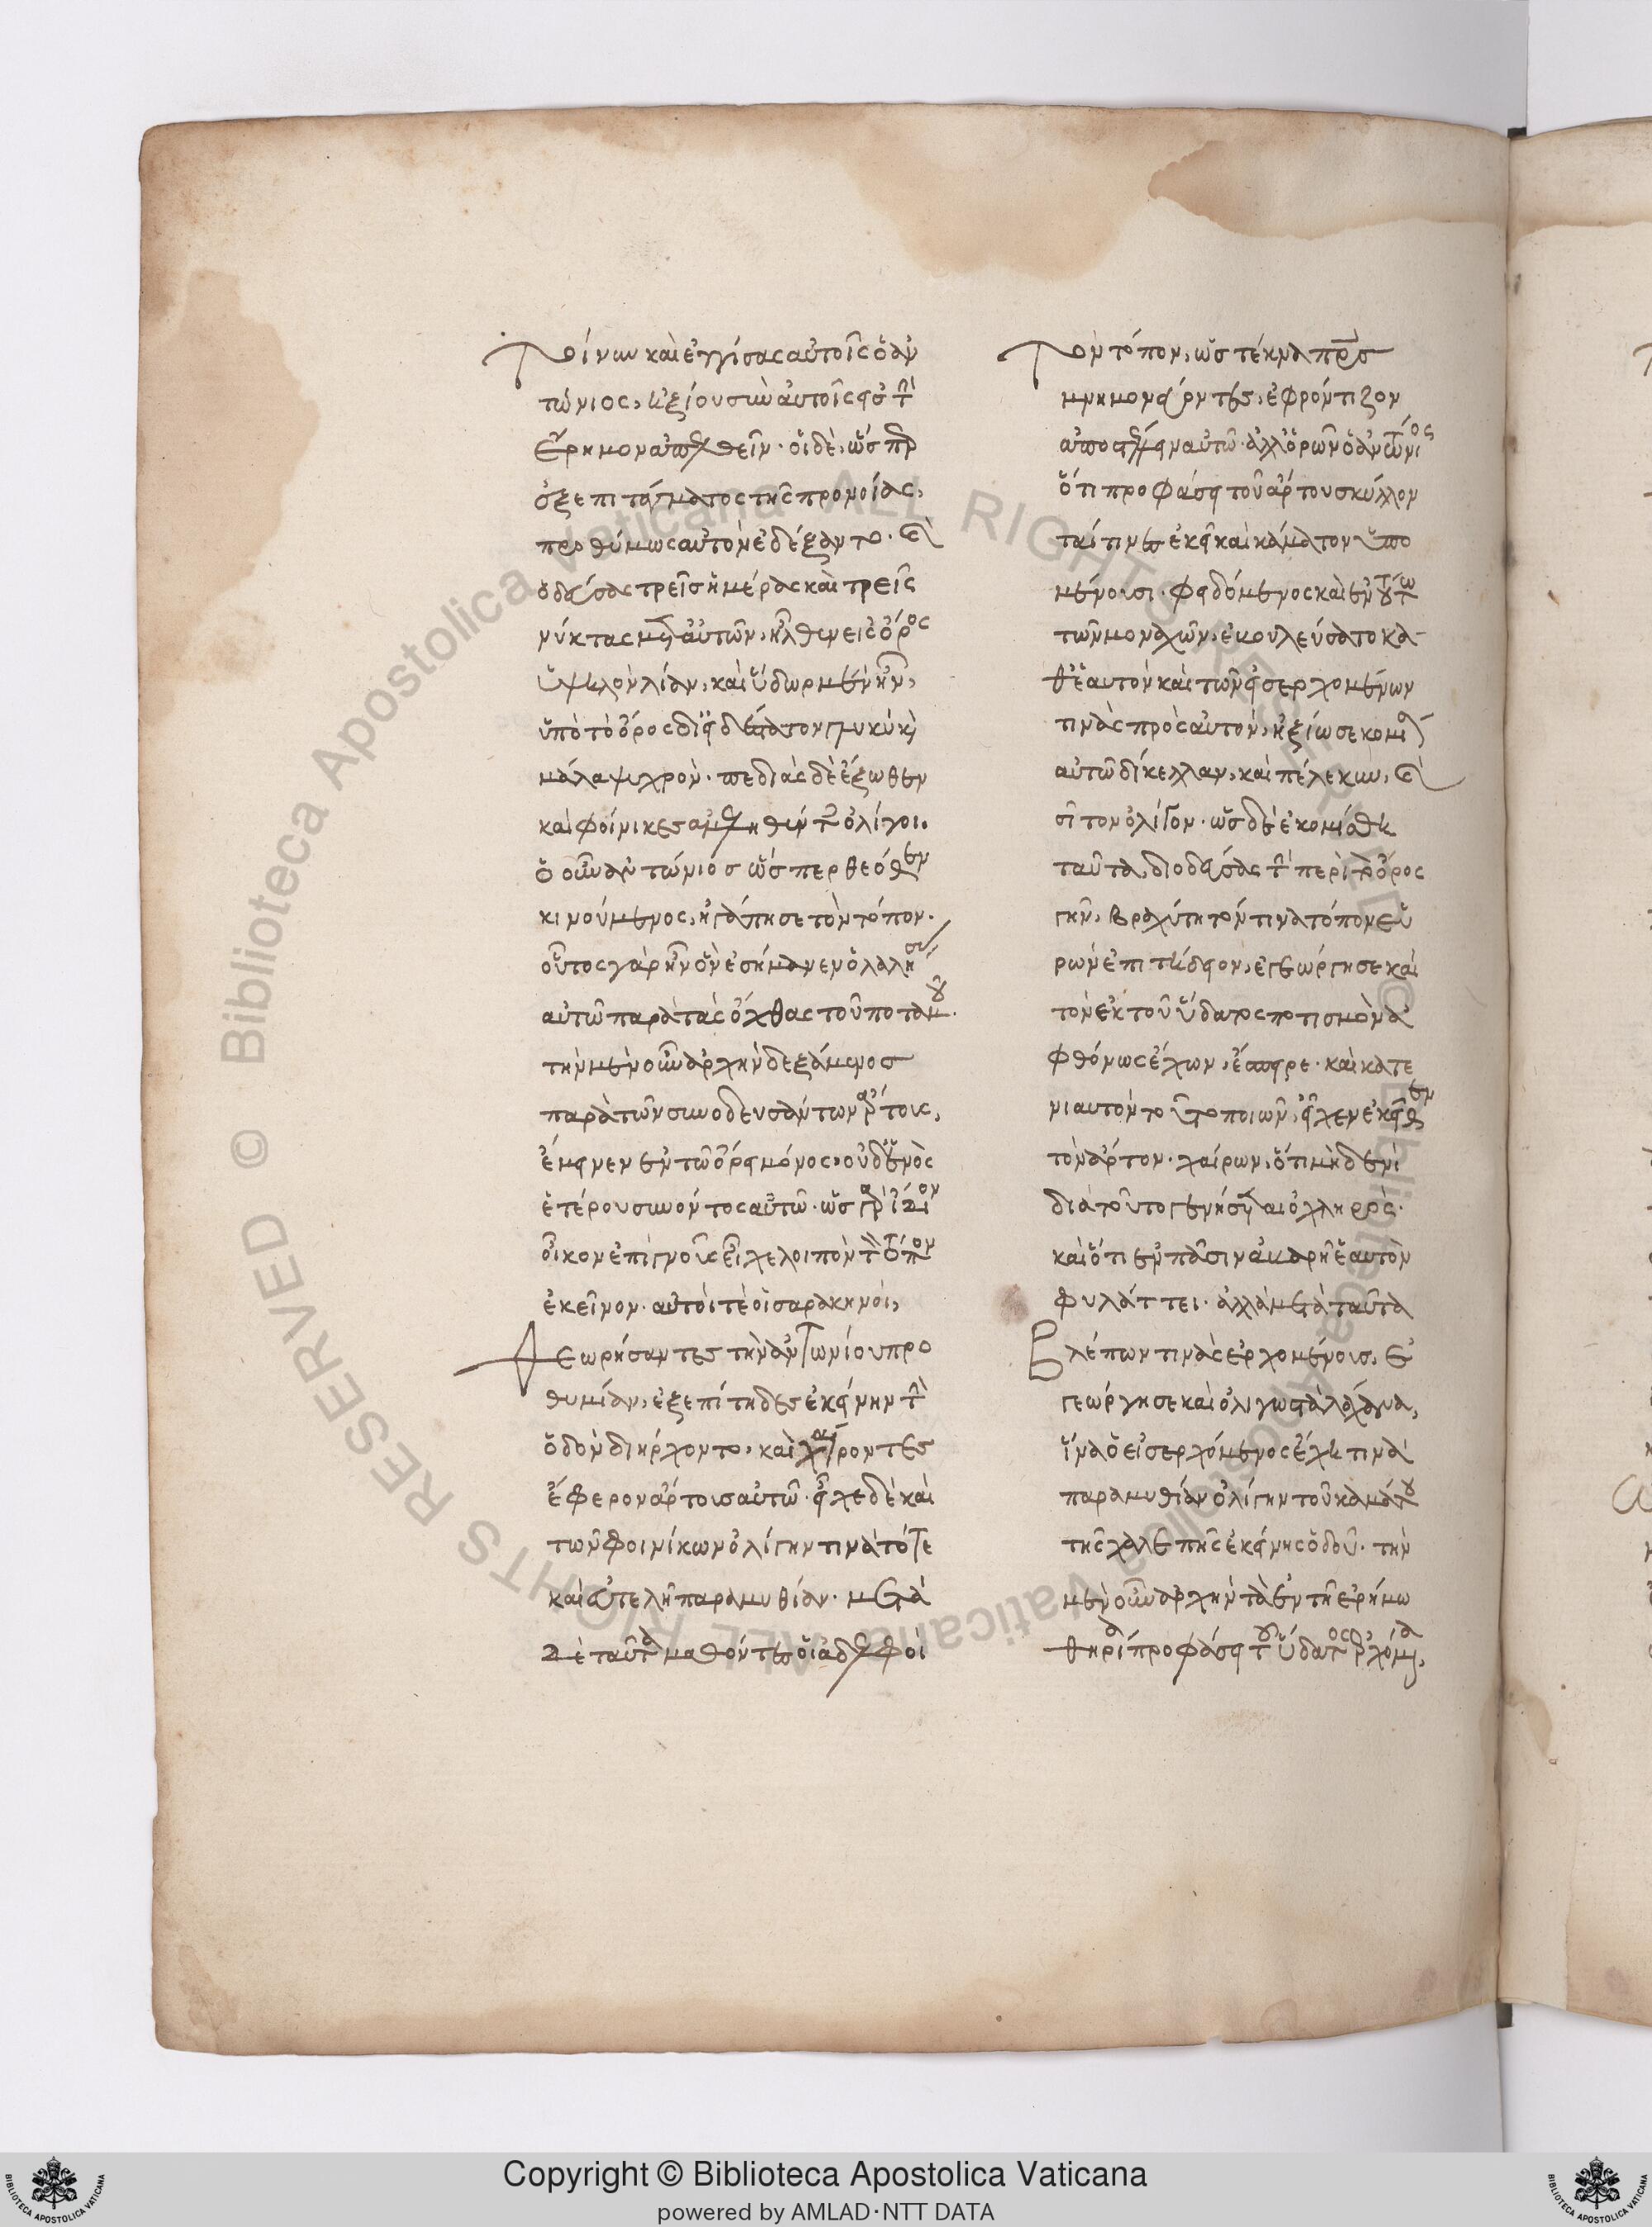 Τοίνυν καὶ ἐγγίσας αὐτοῖς ὁ ἀν
τώνιος, ἠξίου σὺν αὐτοῖς εἰς τὴν
ἔρημον ἀπελθεῖν. οἱ δὲ, ὥσπερ
ἐξ ἐπιτάγματος τῆς προνοίας,
προθύμως αὐτὸν ἐδέξαντο. καὶ
ὁδεύσας τρεῖς ἡμέρας καὶ τρεῖς
νύκτας μετ αὐτῶν, ἦλθεν εἰς ὄρος
ὑψηλὸν λίαν, καὶ ὕδωρ μὲν ἦν,
ὑπὸ τὸ ὄρος διειδέστατον γλυκὺ καὶ
μάλα ψυχρόν. πεδιὰς δὲ ἔξωθεν
καὶ φοίνικες ἀμεληθέντες ὀλίγοι.
ὁ οὖν ἀντώνιος ὥσπερ θεόθεν
κινούμενος, ἠγάπησε τὸν τόπον.
οὗτος γὰρ ἦν ὃν ἐσήμανεν ὁ λαλήσας
αὐτῶ παρὰ τὰς ὄχθας τοῦ ποταμοῦ.
τὴν μὲν οὖν ἀρχὴν δεξάμενος
παρὰ τῶν συνοδευσάντων ἄρτους,
ἔμεινεν ἐν τῶ ὄρει μόνος, οὐδενὸς
ἑτέρου συνόντος αὐτῶ. ὡς γὰρ ἴδιον
οἶκον ἐπιγνοὺς εἶχε λοιπὸν τὸν τόπον
ἐκεῖνον. αὐτοί τε οἱ σαρακηνοί,
Θεωρήσαντες τὴν ἀντωνίου προ
θυμίαν, ἐξεπίτηδες ἐκείνην τὴν
ὁδὸν διήρχοντο, καὶ χαίροντες
ἔφερον ἄρτους αὐτῶ. εἶχε δὲ καὶ
τῶν φοινίκων ὀλίγην τινὰ τότε
καὶ εὐτελῆ παραμυθίαν. μετὰ
δὲ ταῦτα μαθόντες οἱ ἀδελφοὶ
Τὸν τόπον, ὡς τέκνα πατρὸς
μνημονεύοντες, ἐφρόντιζον
ἀποστέλλειν αὐτῶ. ἀλλ ὁρῶν ὁ ἀντώνιος
ὅτι προφάσει τοῦ ἄρτου σκύλλον
ταί τινες ἐκεῖ καὶ κάματον ὑπο
μένουσι. φειδόμενος καὶ ἐν τούτω
τῶν μοναχῶν, ἐβουλεύσατο κα
θ ἑαυτὸν καὶ τῶν εἰσερχομένων
τινὰς πρὸς αὐτὸν, ἠξίωσε κομίσαι
αὐτῶ δίκελλαν, καὶ πέλεκυν, καὶ
σῖτον ὀλίγον. ὡς δὲ ἐκομίσθη
ταῦτα, διοδεύσας τὴν περὶ τὸ ὄρος
γῆν, βραχύτητόν τινα τόπον εὑ
ρὼν ἐπιτήδειον, ἐγεώργησε καὶ
τὸν ἐκ τοῦ ὕδατος ποτισμὸν ἀ
φθόνως ἔχων, ἔσπειρε. καὶ κατ ἐ
νιαυτὸν τοῦτο ποιῶν, εἶχεν ἐκεῖθεν
τὸν ἄρτον. χαίρων, ὅτι μηδενὶ
διὰ τοῦτο γενήσεται ὀχληρός.
καὶ ὅτι ἐν πᾶσιν ἀβαρῆ ἑαυτὸν
φυλάττει. ἀλλὰ μετὰ ταῦτα
Βλέπων τινὰς ἐρχομένους, ἐ
γεώργησε καὶ ὀλίγιστα λάχανα,
ἵνα ὁ εἰσερχόμενος ἔχη τινὰ
παραμυθίαν ὀλίγην τοῦ καμάτου
τῆς χαλεπῆς ἐκείνης ὁδοῦ. τὴν
μὲν οὖν ἀρχὴν τὰ ἐν τῆ ἐρήμω
θηρία προφάσει τοῦ ὕδατος ἐρχόμενα,